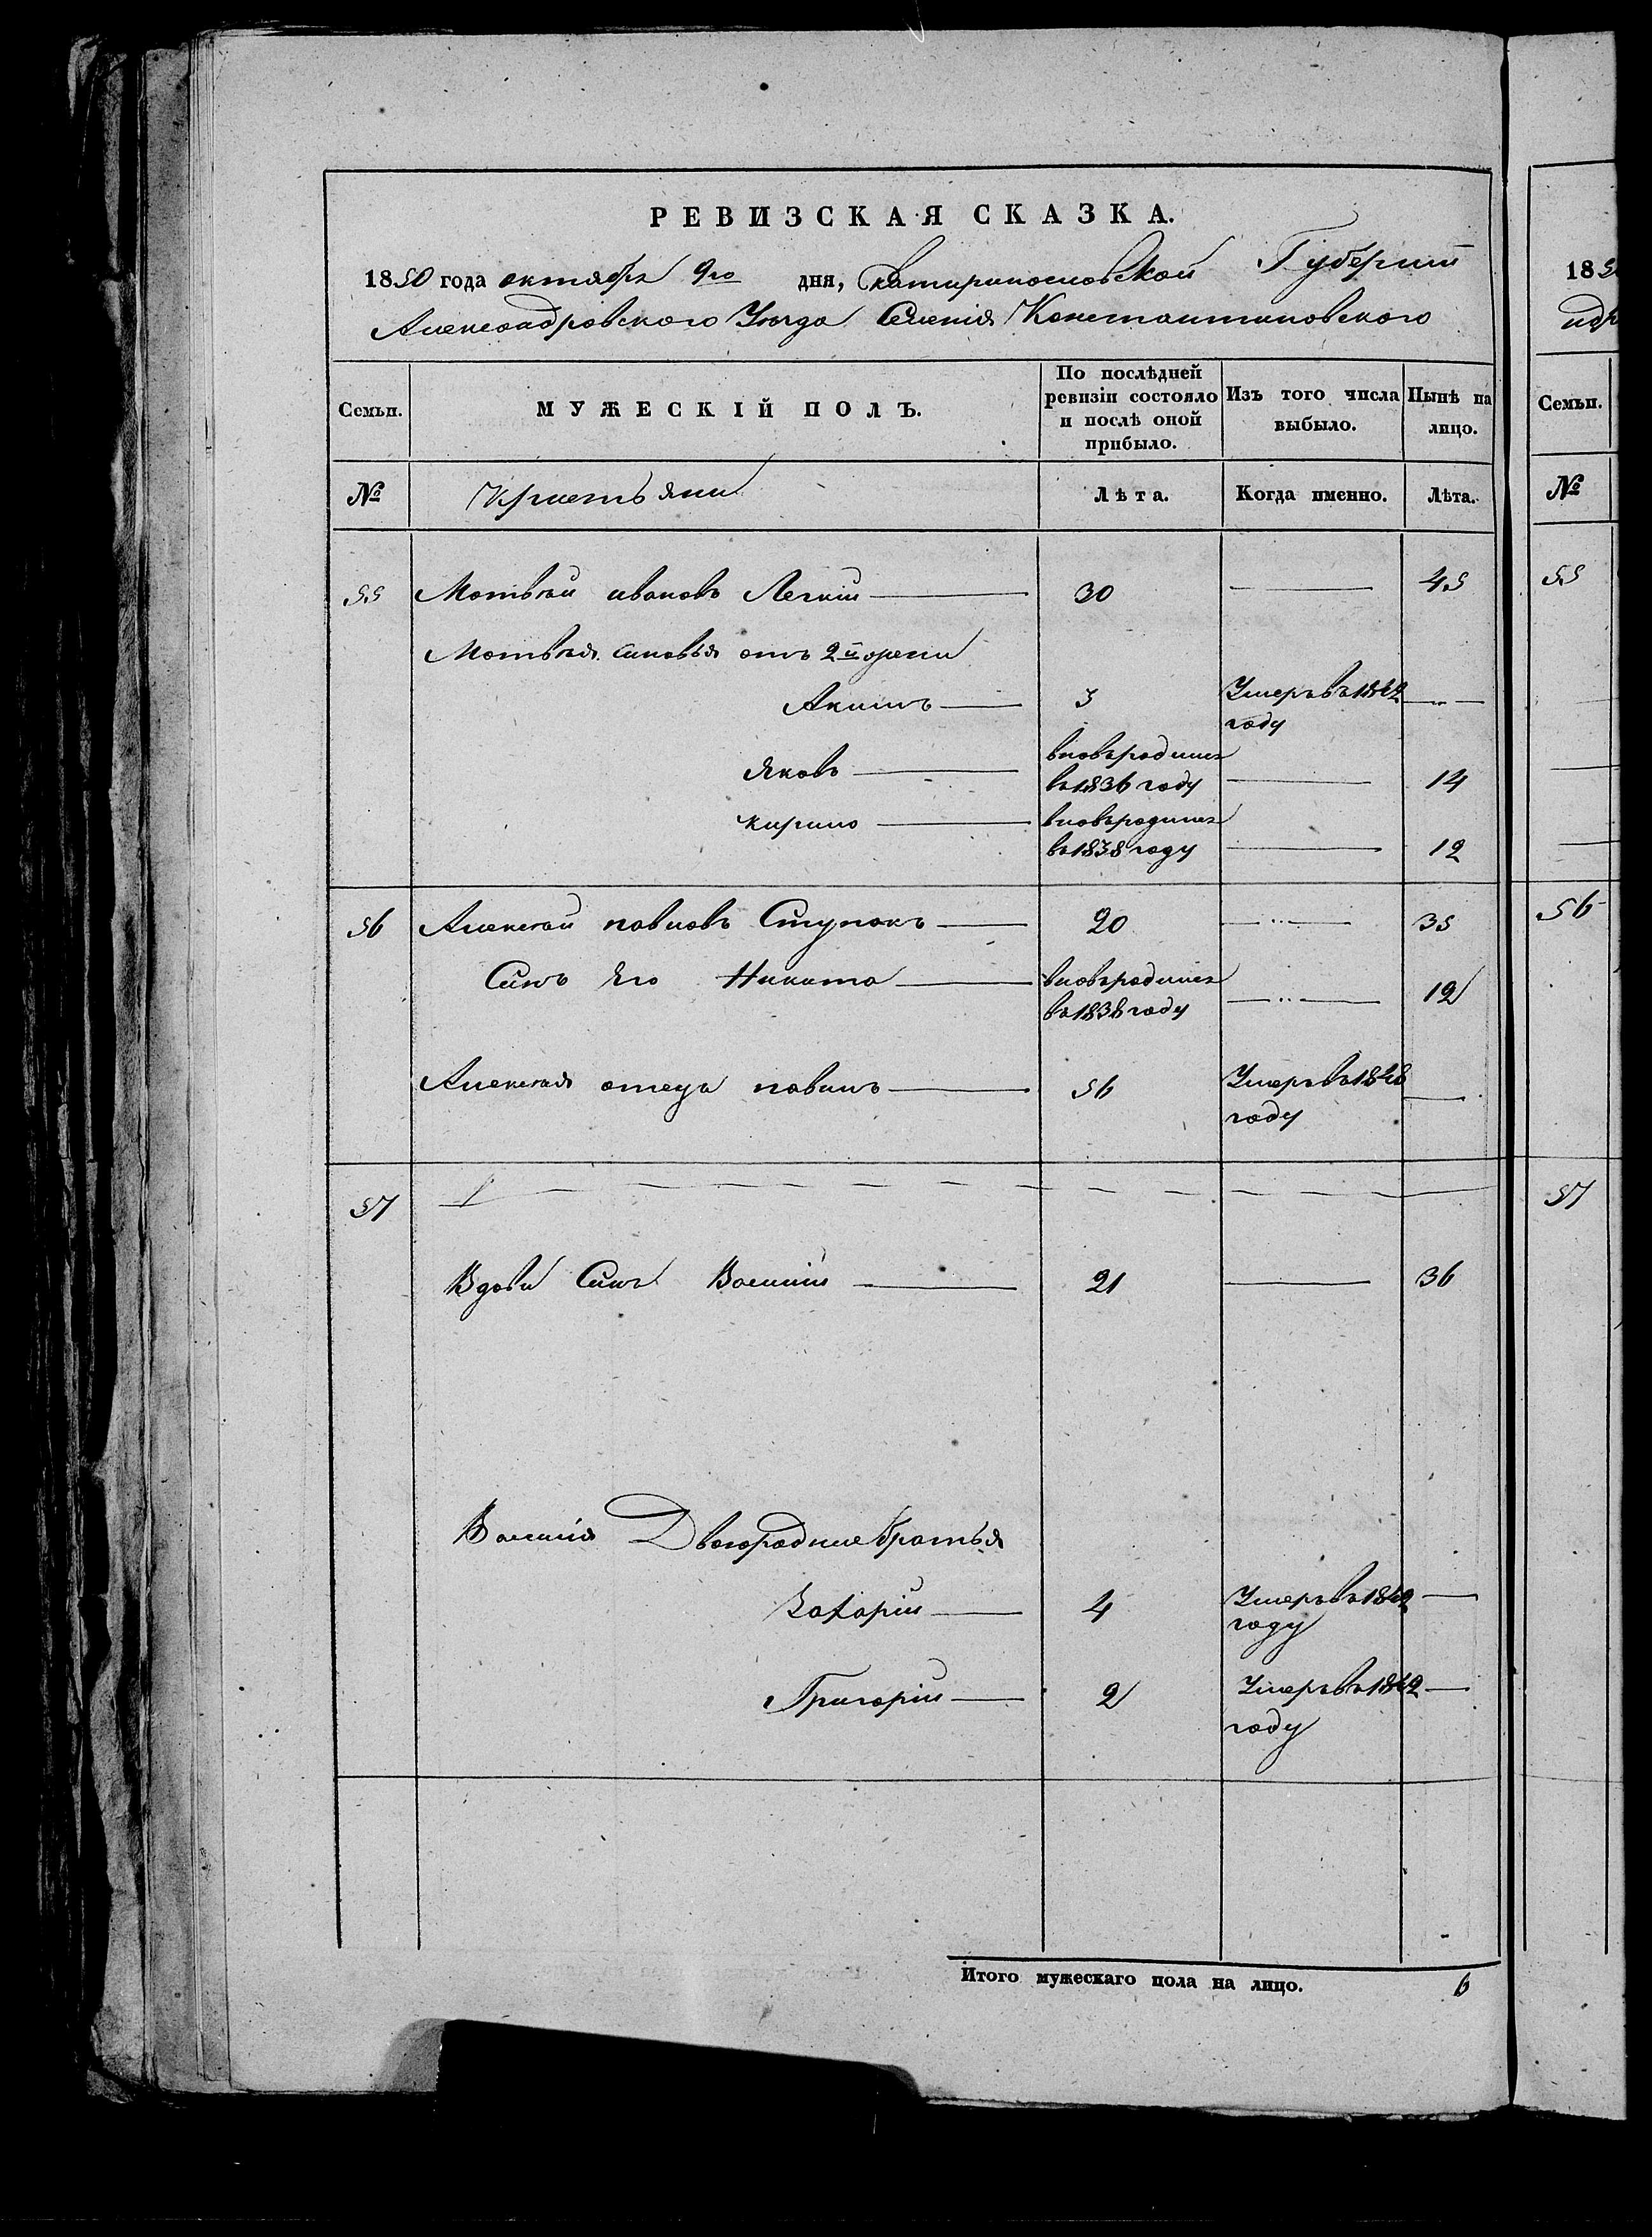 РЕВИЗСКАЯ СКАЗКА.
1850 года октября 9го дня, Екатеринославской Губернии
Александровского Уезда Селения Константиновского
Семьи.
МУЖЕСКІЙ ПОЛЪ.
По послѣдней
ревизіи состояло
и послѣ оной
прибыло.
Изъ того числа
выбыло.
Нынѣ на
лицо.
№
Крестьяни
Лѣта.
Когда именно.
Лѣта.
55 Мотвѣй ивановъ Легкий 30 45
Мотвѣя синовья отъ 2й жени
Акимъ 3 Умеръ въ 1842
году
Яковъ вновъродился
въ 1836 году 14
кирило вновъродился
въ 1838 году 12
56 Алексѣй павловъ Ступакъ 20 35
Синъ Его Никита вновърадился
въ 1838 году 12
Алексѣя отецъ павилъ 56 Умеръ въ 1848
году
57
Вдови Синъ Василий 21 36
Василия Двоюродние братья
Захарий 4 Умеръ въ 1842
году
Григорий 2 Умеръ въ 1842
году
Итого мужескаго пола на лицо. 6
185
Семьи.
№
55
56
57